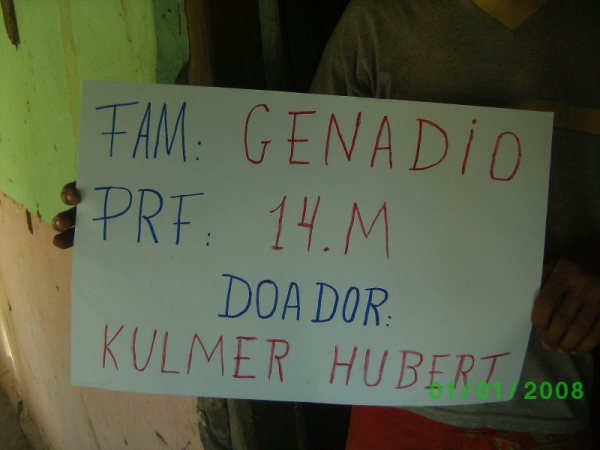 FAM: GENADiO
PRF: 14.M
DOADOR:
KULMER HUBERT
01/01/2008